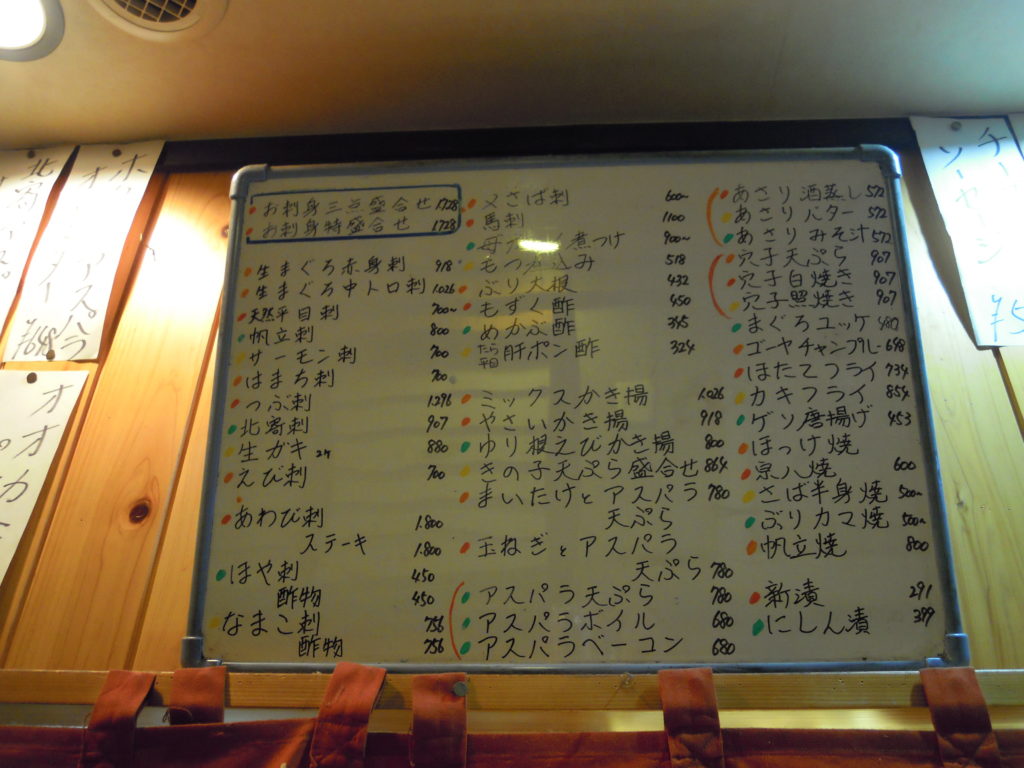 お刺身三点盛合せ 1728
お刺身特盛合せ 1728
生まぐろ赤身刺 918
生まぐろ中トロ刺 1.026
天然平目刺 700~
帆立刺 800
サーモン刺 700
はまち刺 700
つぶ刺 1.296
北寄刺 907
生ガキ 2ケ 880
えび刺 700
あわび刺 1.800
ステーキ 1.800
ほや刺 450
酢物 450
なまこ刺 756
酢物 756
〆さば刺 600~
馬刺 1100
煮つけ 900~
もつ煮込み 518
ぶり大根 432
もずく酢 450
めかぶ酢 345
たら
平目 肝ポン酢 324
ミックスかき揚 1.026
やさいかき揚 918
ゆり根えびかき揚 800
きの子天ぷら盛合せ 864
まいたけとアスパラ 780
天ぷら
玉ねぎとアスパラ
天ぷら 780
アスパラ天ぷら 780
アスパラボイル 680
アスパラベーコン 680
あさり酒蒸し 572
あさりバター 572
あさりみそ汁 572
穴子天ぷら 907
穴子白焼き 907
穴子照焼き 907
まぐろユッケ 480
ゴーヤチャンプルー 698
ほたてフライ 734
カキフライ 854
ゲソ唐揚げ 453
ほっけ焼
宗八焼 600
さば半身焼 500~
ぶりカマ焼 500~
帆立焼 800
新漬 291
にしん漬 399
北寄
アスパラ
¥648
オオカ
チーズ
ソーセージ
¥5